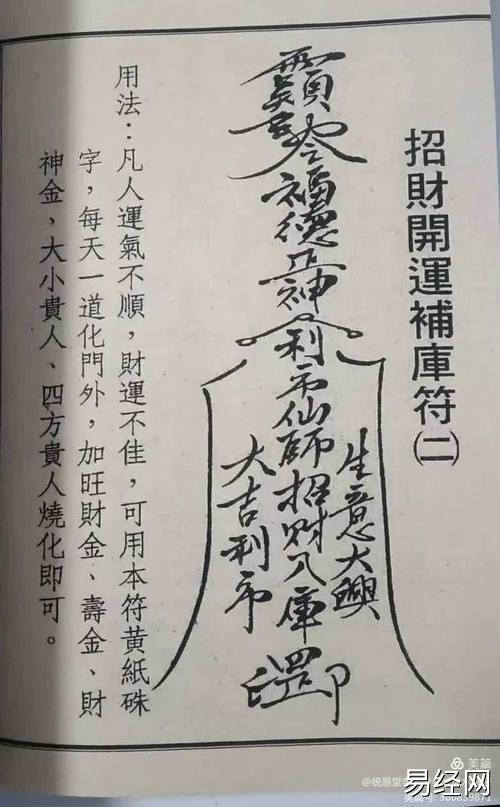 招財開運補庫符㈡
福德正神利市仙師招財入庫
生意大興
大吉利市
用法：凡人運氣不順，財運不佳，可用本符黃紙硃
字，每天一道化門外，加旺財金、壽金、財
神金，大小貴人、四方貴人燒化即可。
美篇
易经网